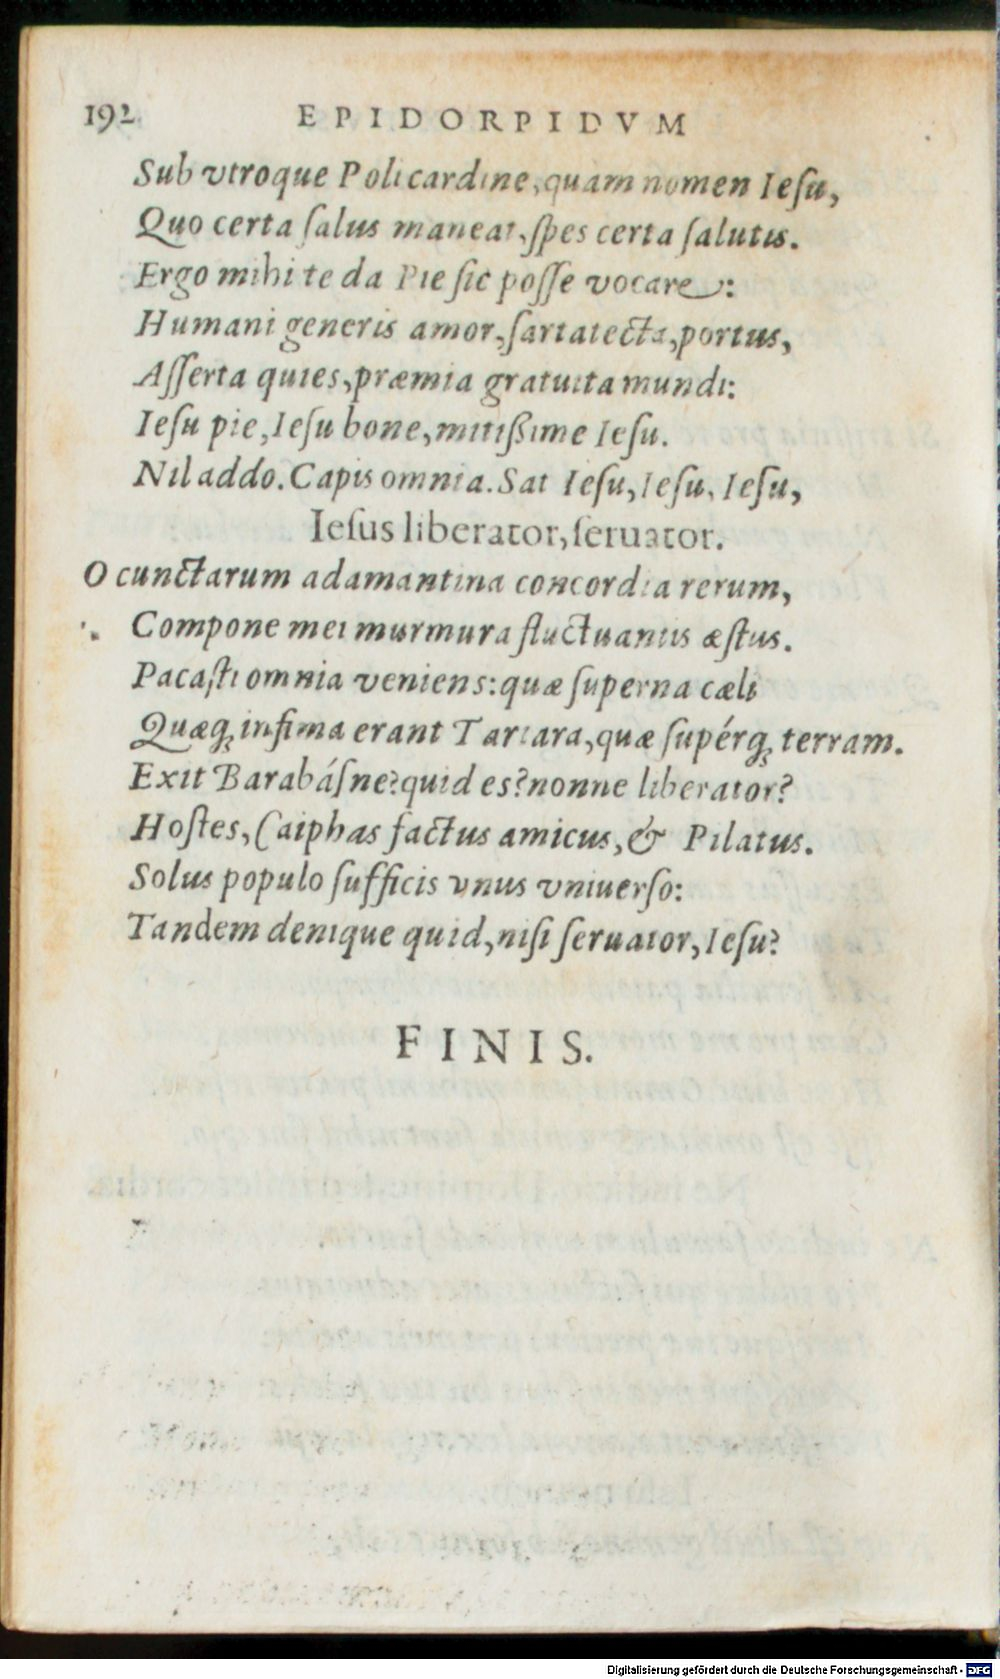 192 EPIDORPIDVM
Sub vtroque Poli cardine, quàm nomen Iesu,
Quo certa salus maneat, spes certa salutis.
Ergo mihi te da Pie sic posse vocare:
Humani generis amor, sartatecta, portus,
Asserta quies, præmia gratuita mundi:
Iesu pie, Iesu bone, mitißime Iesu.
Nil addo. Capis omnia. Sat Iesu, Iesu, Iesu,
Iesus liberator, seruator.
O cunctarum adamantina concordia rerum,
Compone mei murmura fluctuantis æstus.
Pacasti omnia veniens: quæ superna cæli
Quæq; infima erant Tartara, quæ supérq; terram.
Exit Barabásne? quid es? nonne liberator?
Hostes, Caiphas factus amicus, & Pilatus.
Solus populo sufficis vnus vniuerso:
Tandem denique quid, nisi seruator, Iesu?
FINIS.
Digitalisierung gefördert durch die Deutsche Forschungsgemeinschaft - DFG